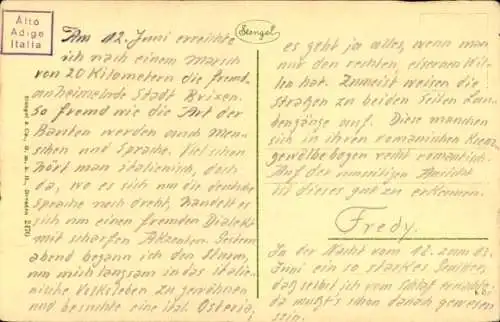 Alto
Adige
Italia
Stengel
Am 12. Juni erreichte
ich nach einem Marsch
von 20 Kilometern die fremd-
anheimelnde Stadt Brixen.
So fremd wie die Art der
Bauten werden auch Men-
schen und Sprache. Viel schon
hört man italienisch, doch
da, wo es sich um die deutsche
Sprache noch dreht, handelt es
sich um einen fremden Dialekt
mit scharfen Akzenten. Gestern
abend begann ich den Stumm,
um mich langsam in das italie-
nische Volksleben zu gewöhnen
und besuchte eine ital. Osteria;
es geht ja alles, wenn man
nur den rechten, eisernen Wil-
len hat. Zumeist weisen die
Straßen zu beiden Seiten Lau-
bengänge auf. Diese machen
sich in ihren romanischen Kreuz-
gewölbebogen recht romantisch.
Auf der umseitigen Ansicht
ist dieses gut zu erkennen.
Fredy.
In der Nacht vom 12. zum 13.
Juni ein so starkes Gewitter,
daß selbst ich vom Schlaf erwachte;
da muß's schon danach gewesen
sein.